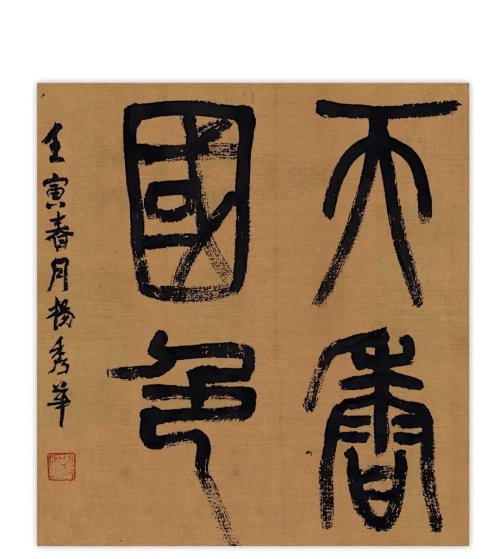 天香
國色
壬寅春月楊秀華